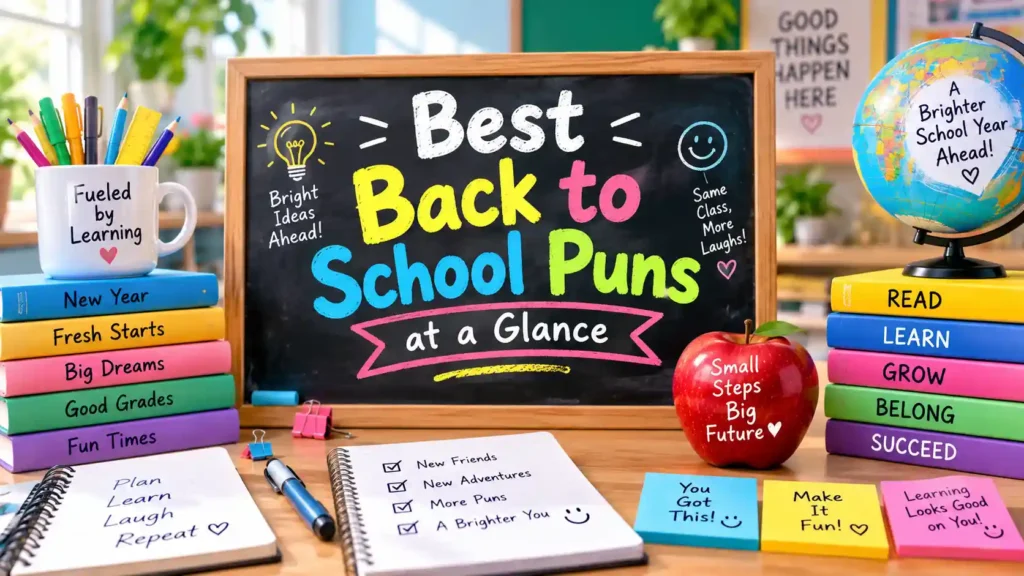 Best
Back to
School Puns
at a Glance
Bright
Ideas
Ahead!
Same
Class,
More
Laughs!
GOOD
THINGS
HAPPEN
HERE
A
Brighter
School Year
Ahead!
Fueled
by
Learning
New Year
Fresh Starts
Big Dreams
Good Grades
Fun Times
READ
LEARN
GROW
BELONG
SUCCEED
Small
Steps
Big
Future
Plan
Learn
Laugh
Repeat
New Friends
New Adventures
More Puns
A Brighter You
You
Got
This!
Make
It
Fun!
Learning
Looks Good
on You!